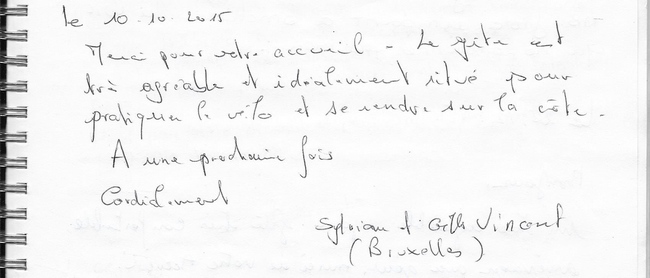 Le 10.10.2015
Merci pour votre accueil - Le gîte est
très agréable et idéalement situé pour
pratiquer le vélo et se rendre sur la côte.
A une prochaine fois
Cordialement
Sylviane et Vincent
(Bruxelles)